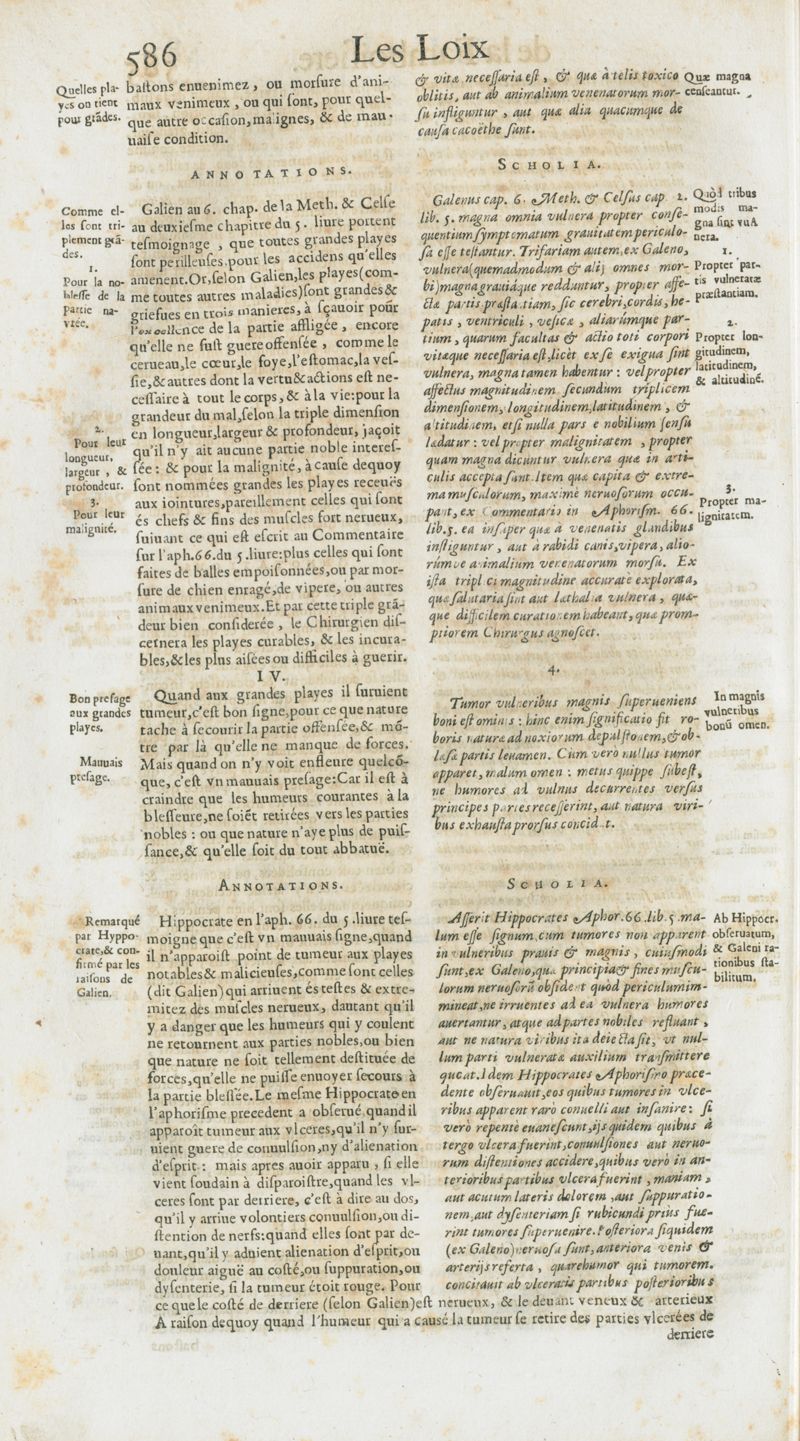 586
Les Loix
Quelles pla-
yes on tient
pour grādes.
bastons enuenimez, ou morsure d'ani-
maux venimeux, ou qui sont, pour quel-
que autre occasion, malignes, & de mau-
uaise condition.
ANNOTATIONS.
Comme el-
les sont tri-
plement grā-
des.
1.
Pour la no-
blesse de la
partie na-
vrée.
Galien au 6. chap. de la Meth. & Celse
au deuxiesme chapitre du 5. liure portent
tesmoignage, que toutes grandes playes
sont perilleuses, pour les accidens qu'elles
amenent. Or, selon Galien, les playes (com-
me toutes autres maladies) sont grandes &
griefues en trois manieres, à sçauoir pour
l'excellence de la partie affligée, encore
qu'elle ne fust guere offensée, comme le
cerueau, le cœur, le foye, l'estomac, la ves-
sie, & autres dont la vertu & actions est ne-
cessaire à tout le corps, & à la vie: pour la
grandeur du mal, selon la triple dimension
en longueur, largeur & profondeur, jaçoit
qu'il n'y ait aucune partie noble interes-
sée: & pour la malignité, à cause dequoy
sont nommées grandes les playes receuës
aux iointures, pareillement celles qui sont
és chefs & fins des muscles fort nerueux,
suiuant ce qui est escrit au Commentaire
sur l'aph. 66. du 5. liure: plus celles qui sont
faites de balles empoisonnées, ou par mor-
sure de chien enragé, de vipere, ou autres
animaux venimeux. Et par cette triple grā-
deur bien considerée, le Chirurgien dis-
cernera les playes curables, & les incura-
bles, & les plus aisées ou difficiles à guerir.
2.
Pour leur
longueur,
largeur, &
profondeur.
3.
Pour leur
malignité.
IV.
Bon presage
aux grandes
playes.
Mauuais
presage.
Quand aux grandes playes il suruient
tumeur, c'est bon signe, pour ce que nature
tache à secourir la partie offensée, & mō-
tre par là qu'elle ne manque de forces.
Mais quand on n'y voit enfleure quelcō-
que, c'est vn mauuais presage: Car il est à
craindre que les humeurs courantes à la
blesseure, ne soiēt retirées vers les parties
nobles: ou que nature n'aye plus de puis-
sance, & qu'elle soit du tout abbatuë.
ANNOTATIONS.
Remarqué
par Hyppo-
crate, & con-
firmé par les
raisons de
Galien.
Hippocrate en l'aph. 66. du 5. liure tes-
moigne que c'est vn mauuais signe, quand
il n'apparoist point de tumeur aux playes
notables & malicieuses, comme sont celles
(dit Galien) qui arriuent és testes & extre-
mitez des muscles nerueux, dautant qu'il
y a danger que les humeurs qui y coulent
ne retournent aux parties nobles, ou bien
que nature ne soit tellement destituée de
forces, qu'elle ne puisse enuoyer secours à
la partie blessée. Le mesme Hippocrate en
l'aphorisme precedent a obserué quand il
apparoît tumeur aux vlceres, qu'il n'y sur-
uient guere de conuulsion, ny d'alienation
d'esprit: mais apres auoir apparu, si elle
vient soudain à disparoistre, quand les vl-
ceres sont par derriere, c'est à dire au dos,
qu'il y arriue volontiers conuulsion, ou di-
stention de nerfs: quand elles sont par de-
uant, qu'il y aduient alienation d'esprit, ou
douleur aiguë au costé, ou suppuration, ou
dysenterie, si la tumeur étoit rouge. Pour
& vitæ necessaria est, & quæ à telis toxico
oblitis, aut ab animalium venenatorum mor-
su infliguntur, aut quæ alia quacumque de
causa cacoëthe sunt.
Quæ magna
censeantur.
SCHOLIA.
Galenus cap. 6. Meth. & Celsus cap. 2.
lib. 5. magna omnia vulnera propter conse-
quentium symptomatum grauitatem periculo-
sa esse testantur. Trifariam autem, ex Galeno,
vulnera (quemadmodum & alij omnes mor-
bi) magna grauiáque redduntur, propter affe-
ctæ partis præstantiam, sic cerebri, cordis, he-
patis, ventriculi, vesicæ, aliarúmque par-
tium, quarum facultas & actio toti corpori
vitæque necessaria est, licèt ex se exigua sint
vulnera, magna tamen habentur: vel propter
affectus magnitudinem secundum triplicem
dimensionem, longitudinem, latitudinem, &
altitudinem, etsi nulla pars e nobilium sensu
lædatur: vel propter malignitatem, propter
quam magna dicuntur vulnera quæ in arti-
culis accepta sunt. Item quæ capita & extre-
ma musculorum, maximè neruosorum occu-
pant, ex Commentariis in Aphorism. 66.
lib. 5. ea insuper quæ à venenatis glandibus
infliguntur, aut à rabidi canis, vipera, alio-
rúmve animalium venenatorum morsu. Ex
ista triplici magnitudine accurate explorata,
quæ salutaria sint aut lathalia vulnera, quæ-
que difficilem curationem habeant, quæ prom-
ptiorem Chirurgus agnoscet.
Quòd tribus
modis ma-
gna sint vul-
nera.
1.
Propter par-
tis vulneratæ
præstantiam.
2.
Propter lon-
gitudinem,
latitudinem,
& altitudinē.
3.
Propter ma-
lignitatem.
4.
Tumor vulneribus magnis superueniens
boni est ominis: hinc enim significatio fit ro-
boris naturæ ad noxiorum depulsionem, & ob-
læsæ partis leuamen. Cùm verò nullus tumor
apparet, malum omen: metus quippe subest,
ne humores ad vulnus decurrentes versùs
principes partes recesserint, aut natura viri-
bus exhausta prorsus concidat.
In magnis
vulneribus
bonū omen.
SCHOLIA.
Asserit Hippocrates Aphor. 66. lib. 5. ma-
lum esse signum, cum tumores non apparent
in vulneribus prauis & magnis, cuiusmodi
sunt, ex Galeno, quæ principia & fines muscu-
lorum neruosorū obsident quòd periculum im-
mineat, ne irruentes ad ea vulnera humores
auertantur, atque ad partes nobiles refluant,
aut ne natura viribus ita deiecta sit, vt nul-
lum parti vulneratæ auxilium transmittere
queat. Idem Hippocrates Aphorismo præce-
dente obseruauit, eos quibus tumores in vlce-
ribus apparent rarò conuelli aut insanire: si
verò repentè euanescunt, ijs quidem quibus à
tergo vlcera fuerint, conuulsiones aut neruo-
rum distentiones accidere, quibus verò in an-
terioribus partibus vlcera fuerint, maniam,
aut acutum lateris dolorem, aut suppuratio-
nem, aut dysenteriam si rubicundi priùs fue-
rint tumores superuenire. Posteriora siquidem
(ex Galeno) neruosa sunt, anteriora venis &
arterijs referta, quare humor qui tumorem
concitauit ab vlceratis partibus posterioribus
Ab Hippocr.
obseruatum,
& Galeni ra-
tionibus sta-
bilitum.
ce que le costé de derriere (selon Galien) est nerueux, & le deuant veneux & arterieux
A raison dequoy quand l'humeur qui a causé la tumeur se retire des parties vlcerées de
derriere